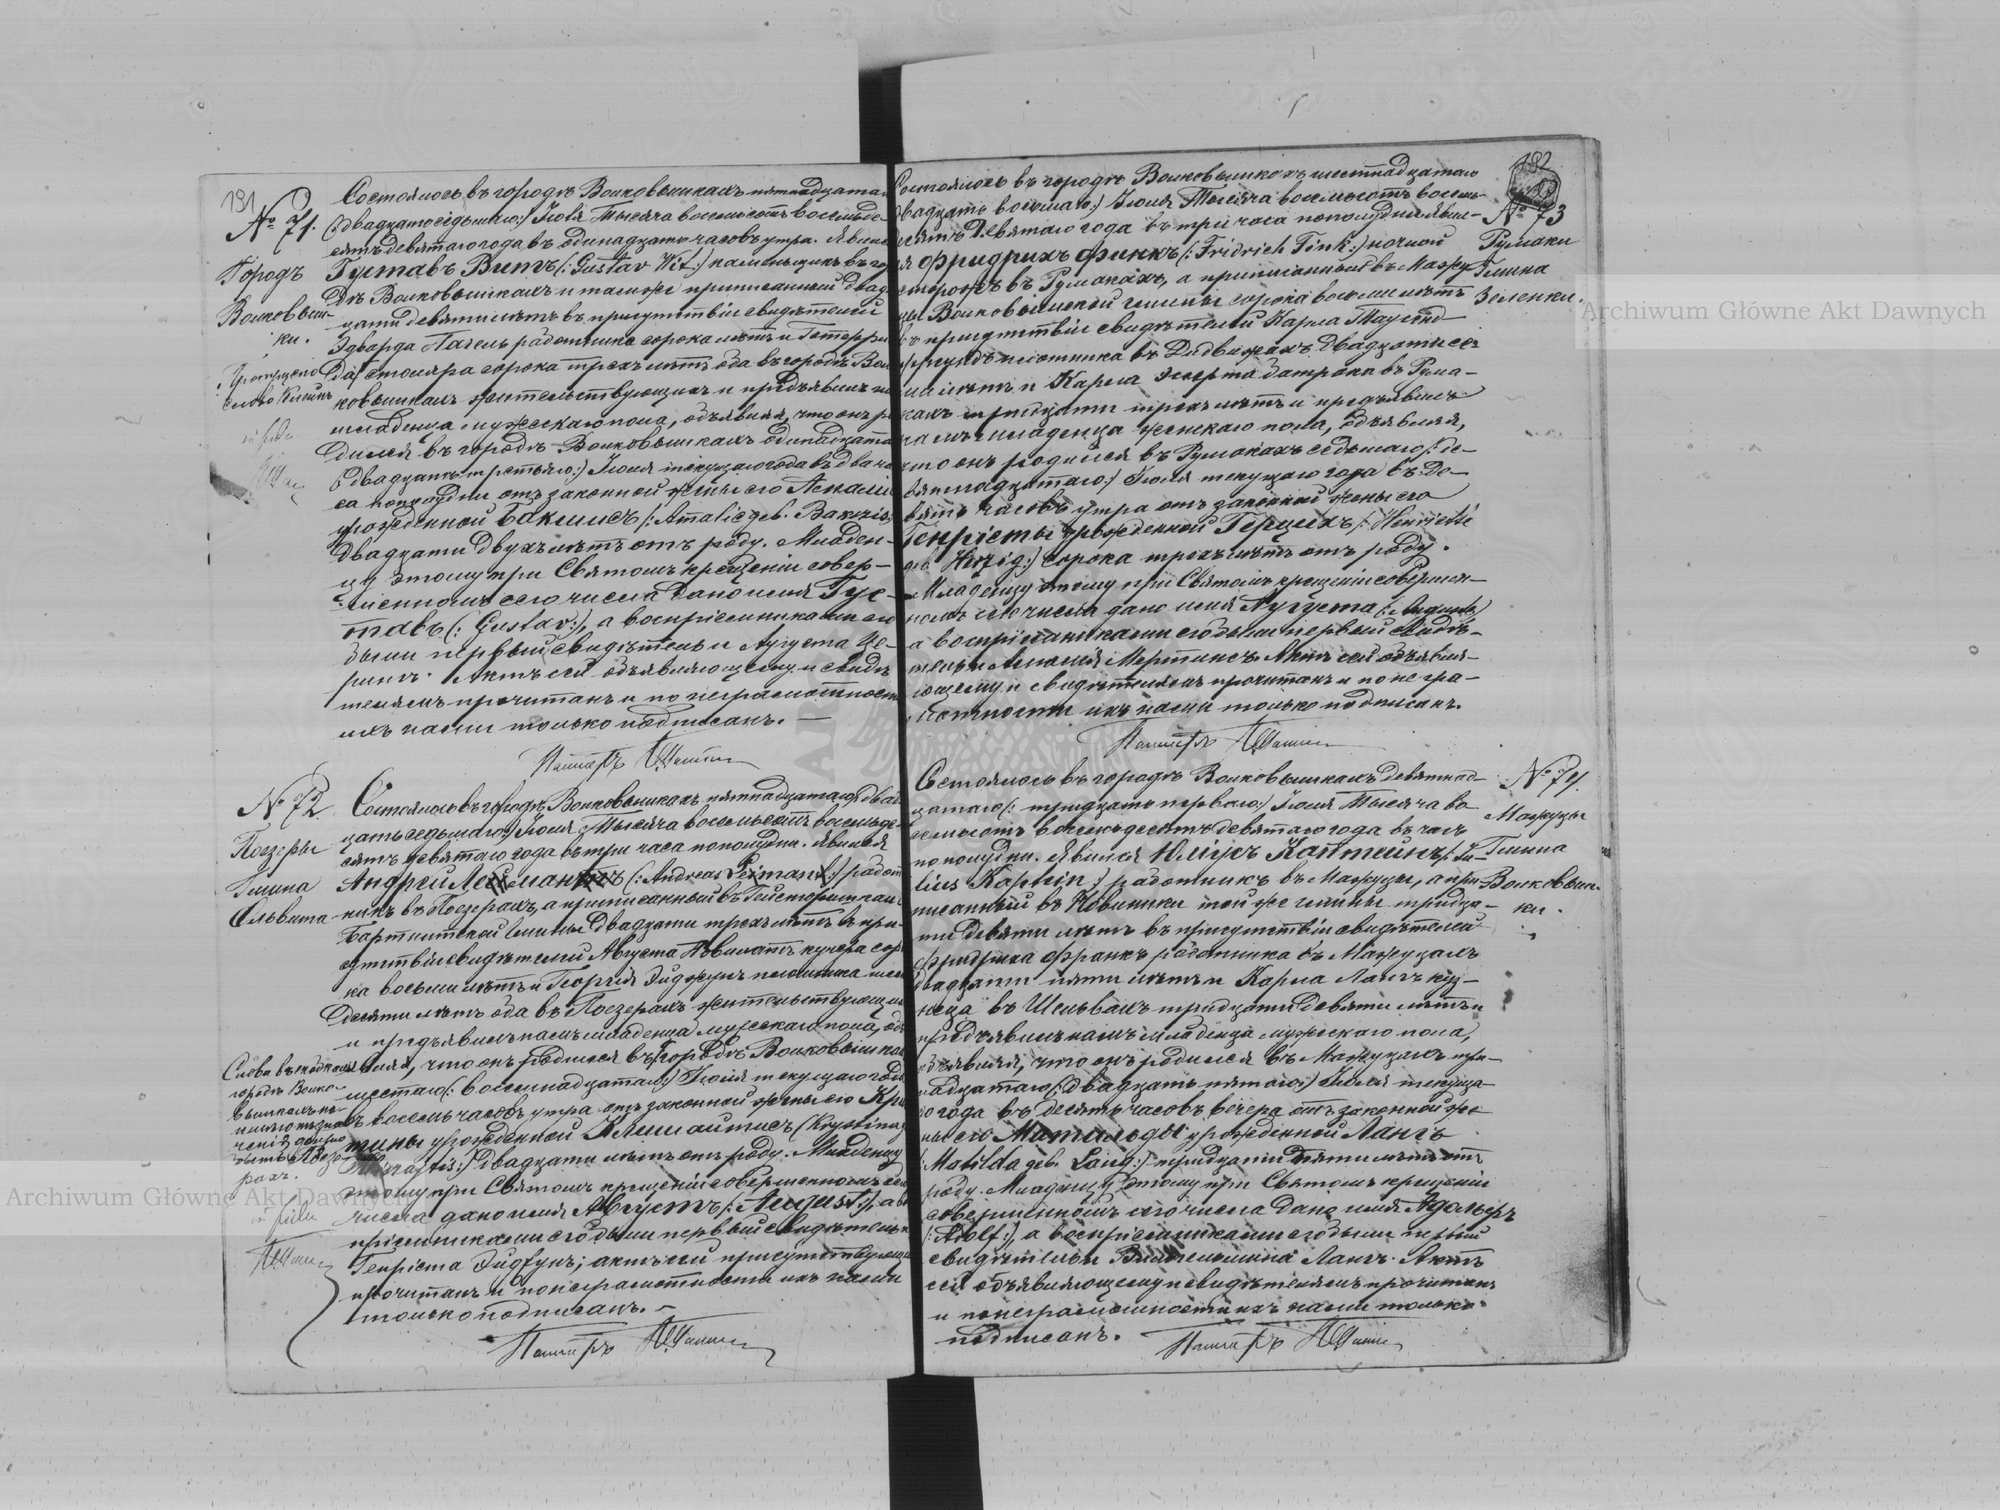 191
№ 71.
Городъ
Волковыш-
ки.
Состоялось въ городѣ Волковышкахъ пятнадцатаго
(:двадцать седьмаго:) Іюля Тысяча восемьсотъ восемьде-
сятъ девятаго года въ одинадцать часовъ утра. Явился
Густавъ Витъ (:Gustav Wit:) каменьщикъ въ горо
дѣ Волковышкахъ и тамъ же приписанный двад
цати девяти лѣтъ въ присутствіи свидѣтелей
Эдварда работника сорока лѣтъ и
столяра сорока трехъ лѣтъ оба въ городѣ Вол
ковышкахъ жительствующихъ и предъявилъ намъ
младенца мужескаго пола, объявляя, что онъ ро
дился въ городѣ Волковышкахъ одинадцатаго
(:двадцать третьяго:) Іюля текущаго года въ два ча
са пополудни отъ законной жены его Амаліи
урожденной (:Amalie geb.
двадцати двухъ лѣтъ отъ роду. Младен-
цу этому при Святомъ крещеніи совер-
шенномъ сего числа дано имя Гус-
тавъ (:Gustav:), а воспріемниками его
были первый свидѣтель и Августа Це-
рихъ. Актъ сей объявляющему и свидѣ
телямъ прочитанъ и по неграмотности
ихъ нами только подписанъ. —
Пасторъ
№ 72
Поезеры
Гмина
Ольвита
Состоялось въ городѣ Волковышкахъ пятнадцатаго (:двад
цать седьмаго:) Іюля Тысяча восемьсотъ восемьде-
сятъ девятаго года въ три часа пополудни. Явился
Андрей (:Andreas :) работ
никъ въ Поезерахъ, а приписанный въ
Бартнитской гмины двадцати трехъ лѣтъ въ при-
сутствіи свидѣтелей Августа кучера соро
ка восьми лѣтъ и Георгія плотника шес
десяти лѣтъ оба въ Поезерахъ жительствующихъ
и предъявилъ намъ младенца мужескаго пола, объ
являя, что онъ родился въ Городѣ Волковышкахъ
шестаго (:восемнадцатаго:) Іюля текущаго года
въ восемь часовъ утра отъ законной жены его Кри
стины урожденной (Krystina
двадцати лѣтъ отъ роду. Младенцу
этому при Святомъ крещеніи совершенномъ сего
числа дано имя Августъ (:August:), а вос
пріемниками его были первый свидѣтель и
Генріета актъ сей присутствующимъ
прочитанъ и по неграмотности ихъ нами
только подписанъ. —
Слова въ
городѣ Волко-
вышкахъ
быть въ Поезе-
рахъ.
Пасторъ
192
№ 73
Румоки
Гмина
Зеленки.
Состоялось въ городѣ Волковышкахъ шестнадцатаго
двадцать восьмаго:) Іюля Тысяча восемьсотъ восемь-
десятъ девятаго года въ три часа пополудни. Явил-
ся Фридрихъ Финкъ (:Fridrich Fink:) ночной
сторожъ въ Румокахъ, а приписанный въ Мажу
цы Волковышской гмины сорока восьми лѣтъ
въ присутствіи свидѣтелей Карла
плотника въ двадцати се-
ми лѣтъ и Карла батрака въ Румо-
кахъ тридцати трехъ лѣтъ и предъявилъ
намъ младенца женскаго пола, объявляя,
что онъ родился въ Румокахъ седьмаго (:де-
вятнадцатаго:) Іюля текущаго года въ де-
вять часовъ утра отъ законной жены его
Генріеты урожденной Герцигъ (:Henriette
geb. Herzig:) сорока трехъ лѣтъ отъ роду.
Младенцу этому при Святомъ крещеніи совершен-
номъ сего числа дано имя Августа (:Auguste)
а воспріемниками его были первый свидѣ-
тель и Амалія Мертинсъ. Актъ сей объявля-
ющему и свидѣтелямъ прочитанъ и по негра-
мотности ихъ нами только подписанъ.
Пасторъ
№ 74.
Мажуцы
Гмина
Волковыш-
ки.
Состоялось въ городѣ Волковышкахъ девятнад-
цатаго (:тридцать перваго:) Іюля Тысяча во-
семьсотъ восемьдесятъ девятаго года въ часъ
пополудни. Явился Юліусъ Каптейнъ (:Ju-
lius Kaptein:) работникъ въ Мажуцы, а при-
писанный въ Новиники той же гмины тридца-
ти девяти лѣтъ въ присутствіи свидѣтелей
Фридриха Франкъ работника въ Мажуцахъ
двадцати пяти лѣтъ и Карла Лангъ куз-
неца въ Шельвахъ тридцати девяти лѣтъ и
предъявилъ намъ младенца мужескаго пола,
объявляя, что онъ родился въ Мажуцахъ три-
надцатаго (:двадцать пятаго:) Іюля текуща-
го года въ десять часовъ вечера отъ законной же
ны его Матильды урожденной Лангъ
(:Matilda geb. Lang:) тридцати пяти лѣтъ отъ
роду. Младенцу этому при Святомъ крещеніи
совершенномъ сего числа дано имя Адольфъ
(:Adolf:), а воспріемниками его были первый
свидѣтель и Вильгельмина Лангъ. Актъ
сей объявляющему и свидѣтелямъ прочитанъ
и по неграмотности ихъ нами только
подписанъ.
Пасторъ
Archiwum Główne Akt Dawnych
Archiwum Główne Akt Dawnych